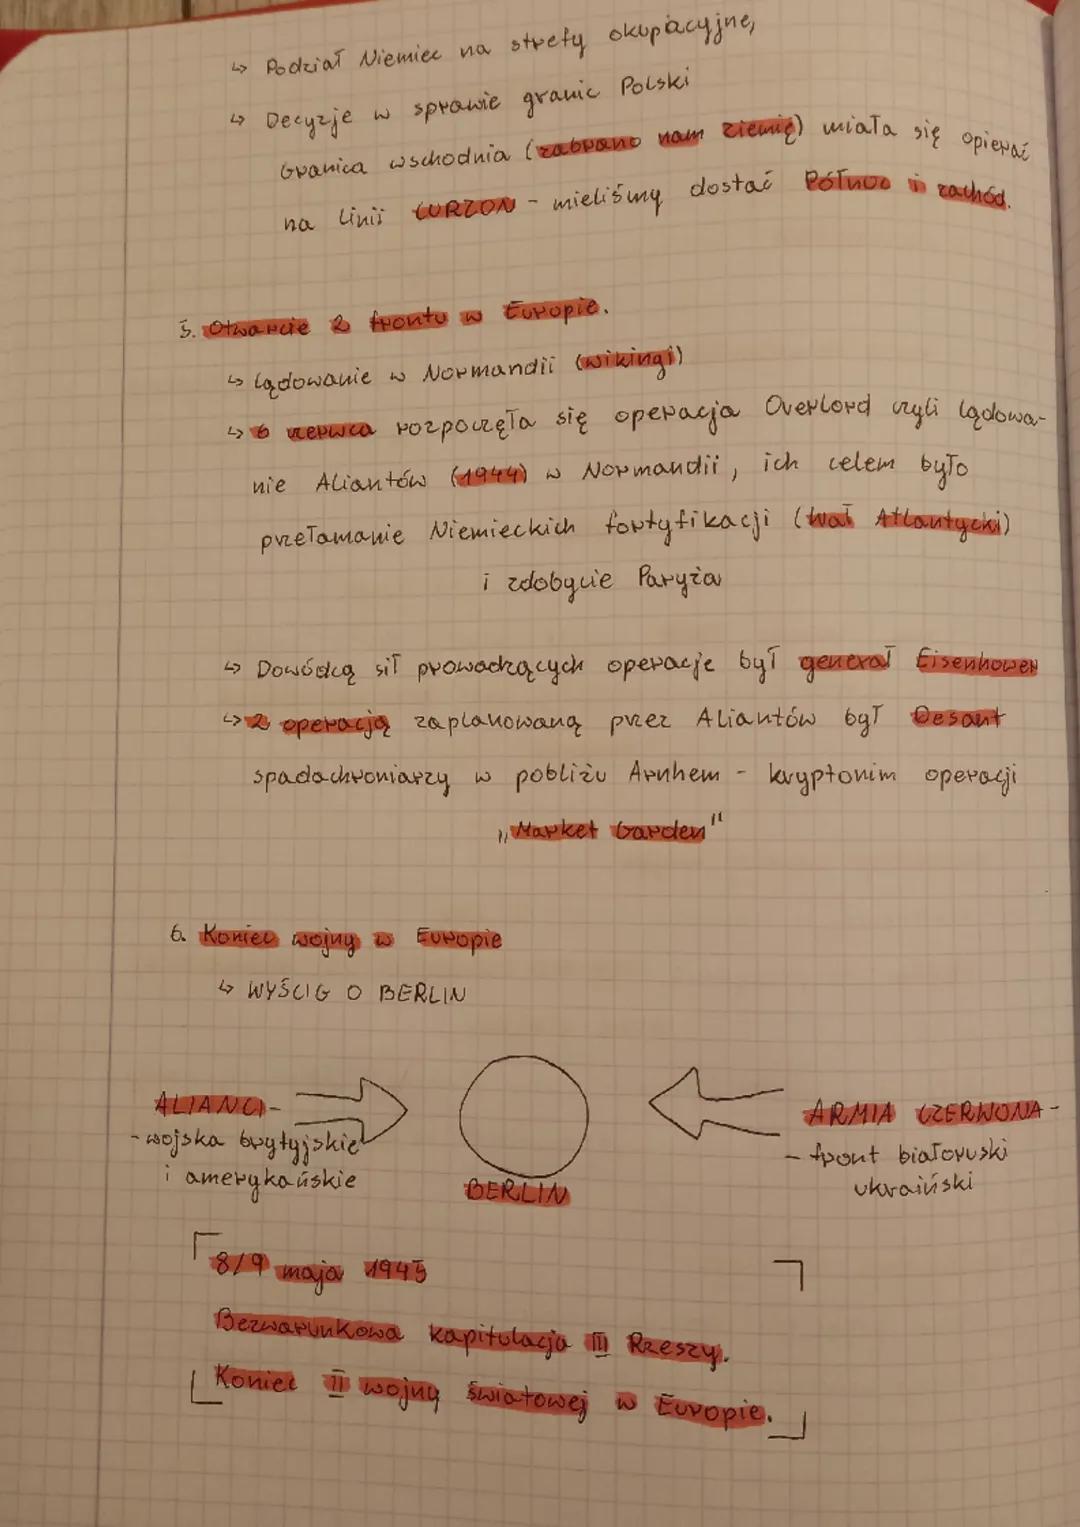 ↳ Podział Niemiec na strefy okupacyjne,
↳ Decyzje w sprawie granic Polski
Granica wschodnia (zabrano nam ziemię) miała się opierać
na linii CURZON - mieliśmy dostać Północ i zachód.
5. Otwarcie 2 frontu w Europie.
↳ lądowanie w Normandii (wikingi)
↳ 6 czerwca rozpoczęła się operacja Overlord czyli lądowa-
nie Aliantów (1944) w Normandii, ich celem było
przełamanie Niemieckich fortyfikacji (wał Atlantycki)
i zdobycie Paryża
↳ Dowódcą sił prowadzących operacje był generał Eisenhower
↳ 2 operacją zaplanowaną przez Aliantów był Desant
spadochroniarzy w pobliżu Arnhem - kryptonim operacji
„Market Garden"
6. Koniec wojny w Europie
↳ WYŚCIG O BERLIN
ALIANCI-
- wojska brytyjskie
i amerykańskie
BERLIN
ARMIA CZERWONA -
- front białoruski
ukraiński
8/9 maja 1945
Bezwarunkowa kapitulacja III Rzeszy.
Koniec II wojny światowej w Europie.